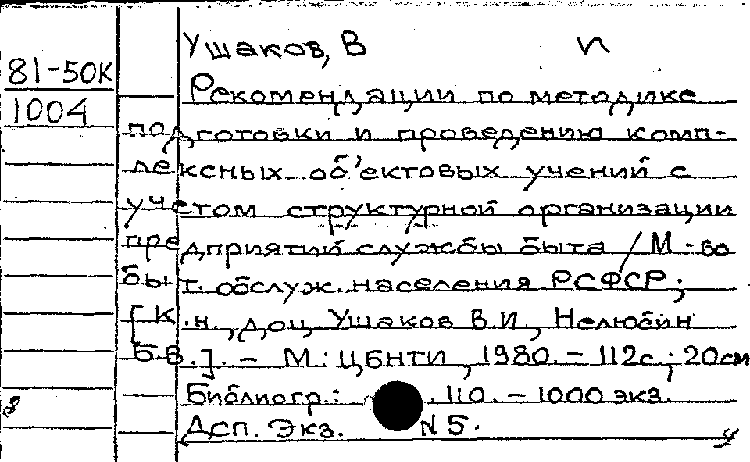 Ушаков, В И
81-50К
1004
Рекомендации по методике
подготовки и проведению комп-
лексных объектовых учений с
учетом структурной организации
предприятий службы быта / М-во
быт. обслуж. населения РСФСР;
[К.н, доц Ушаков В.И, Нелюбин
Б.В.]. - М: ЦБНТИ, 1980. - 112с.; 20см
Библиогр.: 110. - 1000 экз.
Дсп. Экз. N 5.